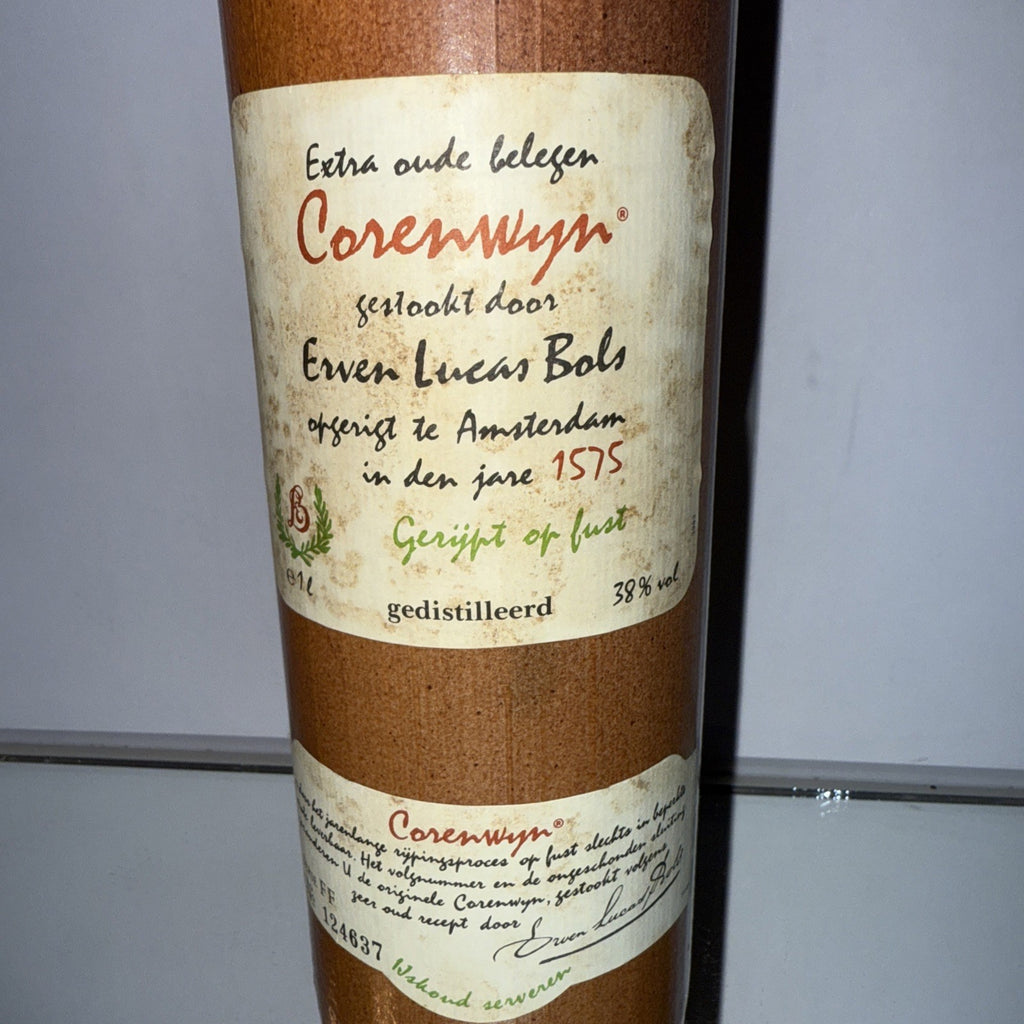 Extra oude belegen
Corenwyn®
gestookt door
Erven Lucas Bols
opgerigt te Amsterdam
in den jare 1575
B
Gerijpt op fust
℮ 1 l
gedistilleerd
38% vol
Corenwyn®
het jarenlange rijpingsproces op fust slechts in beperkte
leverbaar. Het volgnummer en de ongeschonden sluiting
U de originele Corenwyn, gestookt volgens
FF zeer oud recept door
124637
Erven Lucas Bols
IJskoud serveren